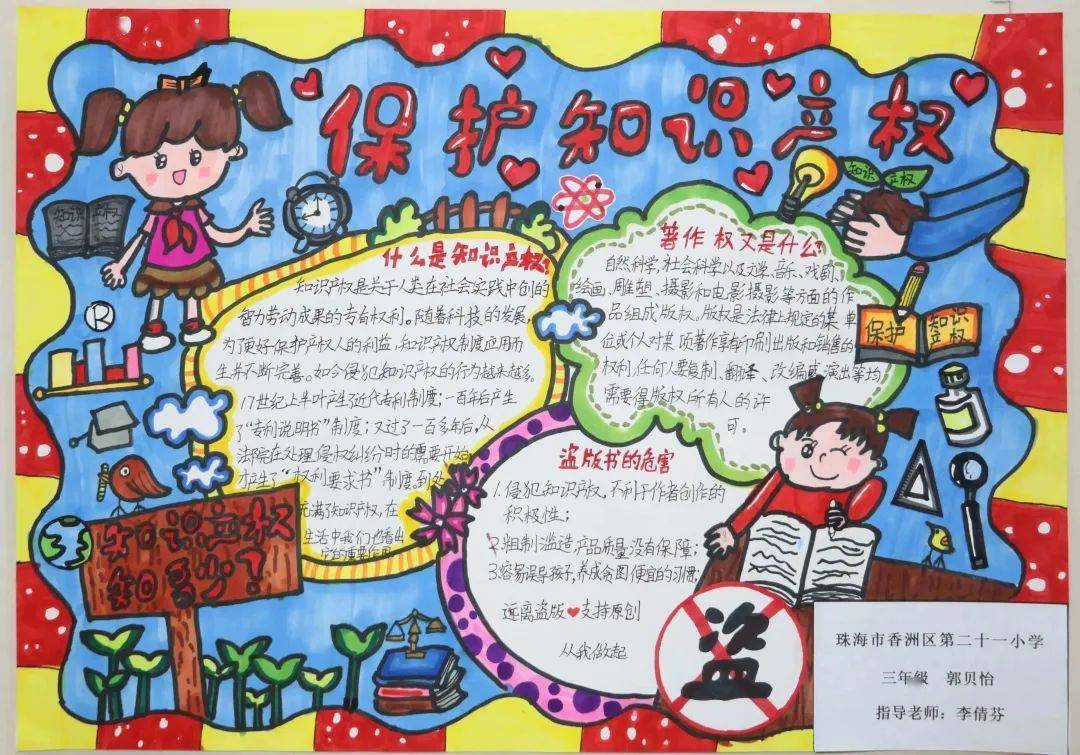 保护知识产权
知识 产权
知识 产权
R
什么是知识产权?
知识产权是关于人类在社会实践中创的
智力劳动成果的专有权利。随着科技的发展,
为了更好保护产权人的利益,知识产权制度应用而
生并不断完善。如今侵犯知识产权的行为越来越多。
17世纪上半叶产生近代专利制度;一百年后产生
了“专利说明书”制度;又过了一百多年后,从
法院在处理侵权纠纷时的需要开始
才产生了“权利要求书”制度。到处
充满了知识产权,在
生活中我们也看出
它的重要作用
著作权又是什么?
自然科学,社会科学以及文学、音乐、戏剧、
绘画、雕塑、摄影和电影摄影等方面的作
品组成版权。版权是法律上规定的某单
位或个人对某项著作享有印刷出版和销售的
权利,任何人要复制、翻译、改编或演出等均
需要得版权所有人的许
可。
保护 知识
产权
盗版书的危害
1.侵犯知识产权,不利于作者创作的
积极性;
2.粗制滥造,产品质量没有保障;
3.容易误导孩子,养成贪图便宜的习惯;
远离盗版❤支持原创
从我做起
知识产权
知多少?
盗
珠海市香洲区第二十一小学
三年级 郭贝怡
指导老师:李倩芬